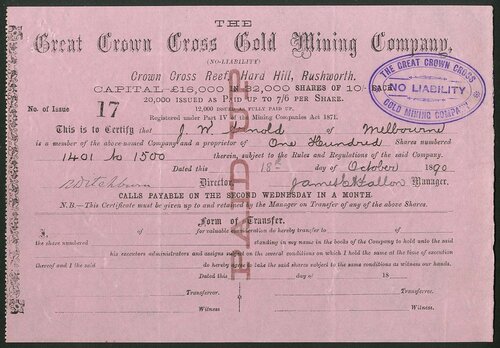 THE
Great Crown Cross Gold Mining Company,
(NO-LIABILITY)
Crown Cross Reef, Hard Hill, Rushworth.
CAPITAL £16,000 IN 32,000 SHARES OF 10/- EACH
20,000 ISSUED AS PAID UP TO 7/6 PER SHARE.
12,000 ISSUED FULLY PAID UP.
Registered under Part IV Mining Companies Act 1871.
THE GREAT CROWN CROSS
NO LIABILITY
GOLD MINING COMPANY
No. of Issue 17
PAID UP
This is to Certify that J. W. Arnold of Melbourne
is a member of the above-named Company and a proprietor of One Hundred Shares numbered
1401 to 1500 therein, subject to the Rules and Regulations of the said Company.
Dated this 18th day of October 1890
Director James Hallon Manager.
CALLS PAYABLE ON THE SECOND WEDNESDAY IN A MONTH.
N.B.—This Certificate must be given up to and retained by the Manager on Transfer of any of the above Shares.
Form of Transfer.
I of for valuable consideration do hereby transfer to of
the shares numbered standing in my name in the books of the Company to hold unto the said
his executors administrators and assigns subject to the several conditions on which I hold the same at the time of execution
thereof and I the said do hereby agree to take the said shares subject to the same conditions as witness our hands.
Dated this day of 18
Transferror. Transferree.
Witness Witness